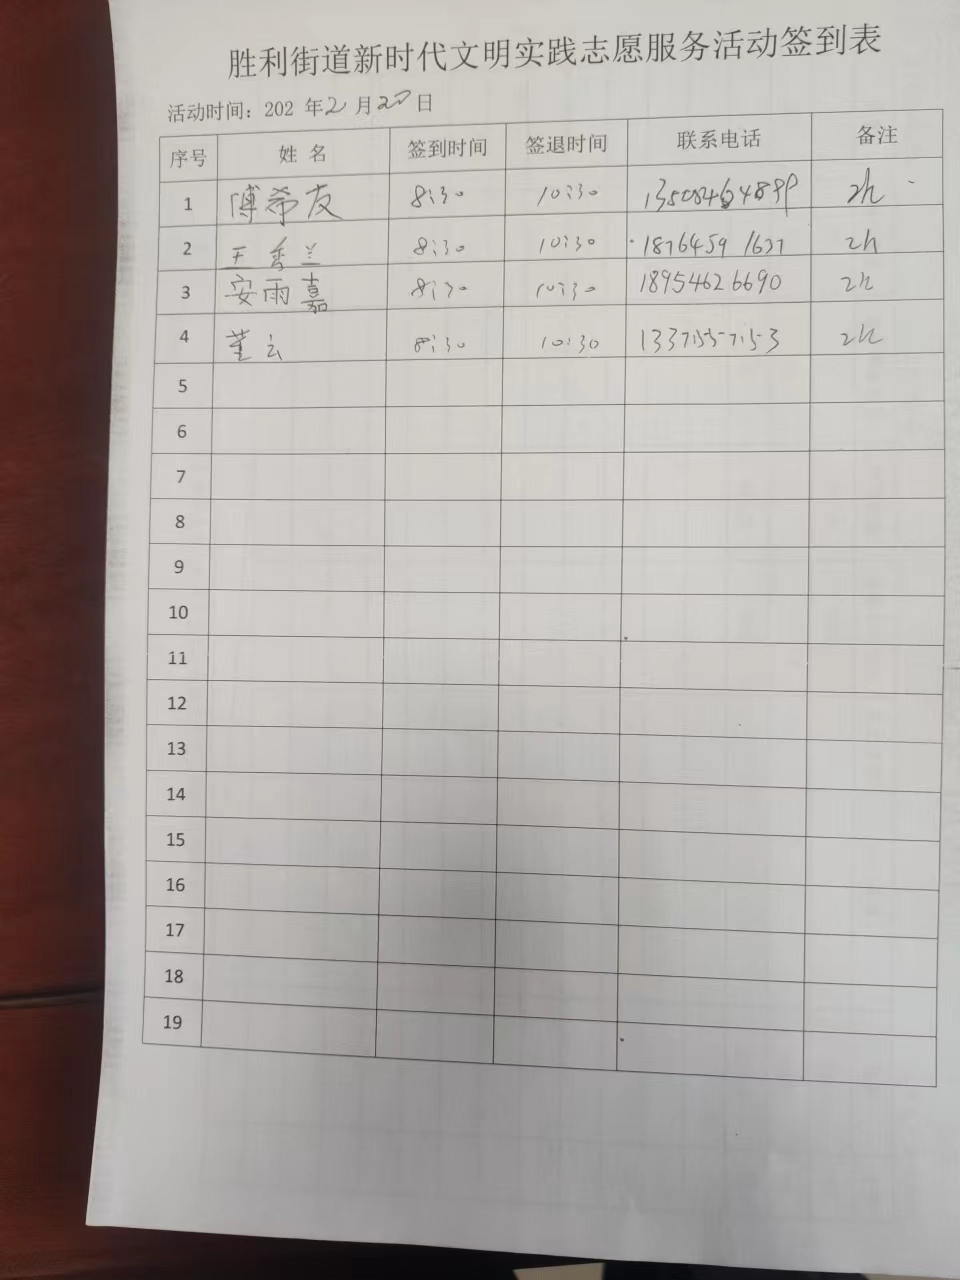 胜利街道新时代文明实践志愿服务活动签到表
活动时间：202 年2月20日
序号 姓 名 签到时间 签退时间 联系电话 备注
1 傅希友 8:30 10:30 2h
2 王秀兰 8:30 10:30 18764591627 2h
3 安雨嘉 8:30 10:30 18954626690 2h
4 董云 8:30 10:30 2h
5
6
7
8
9
10
11
12
13
14
15
16
17
18
19